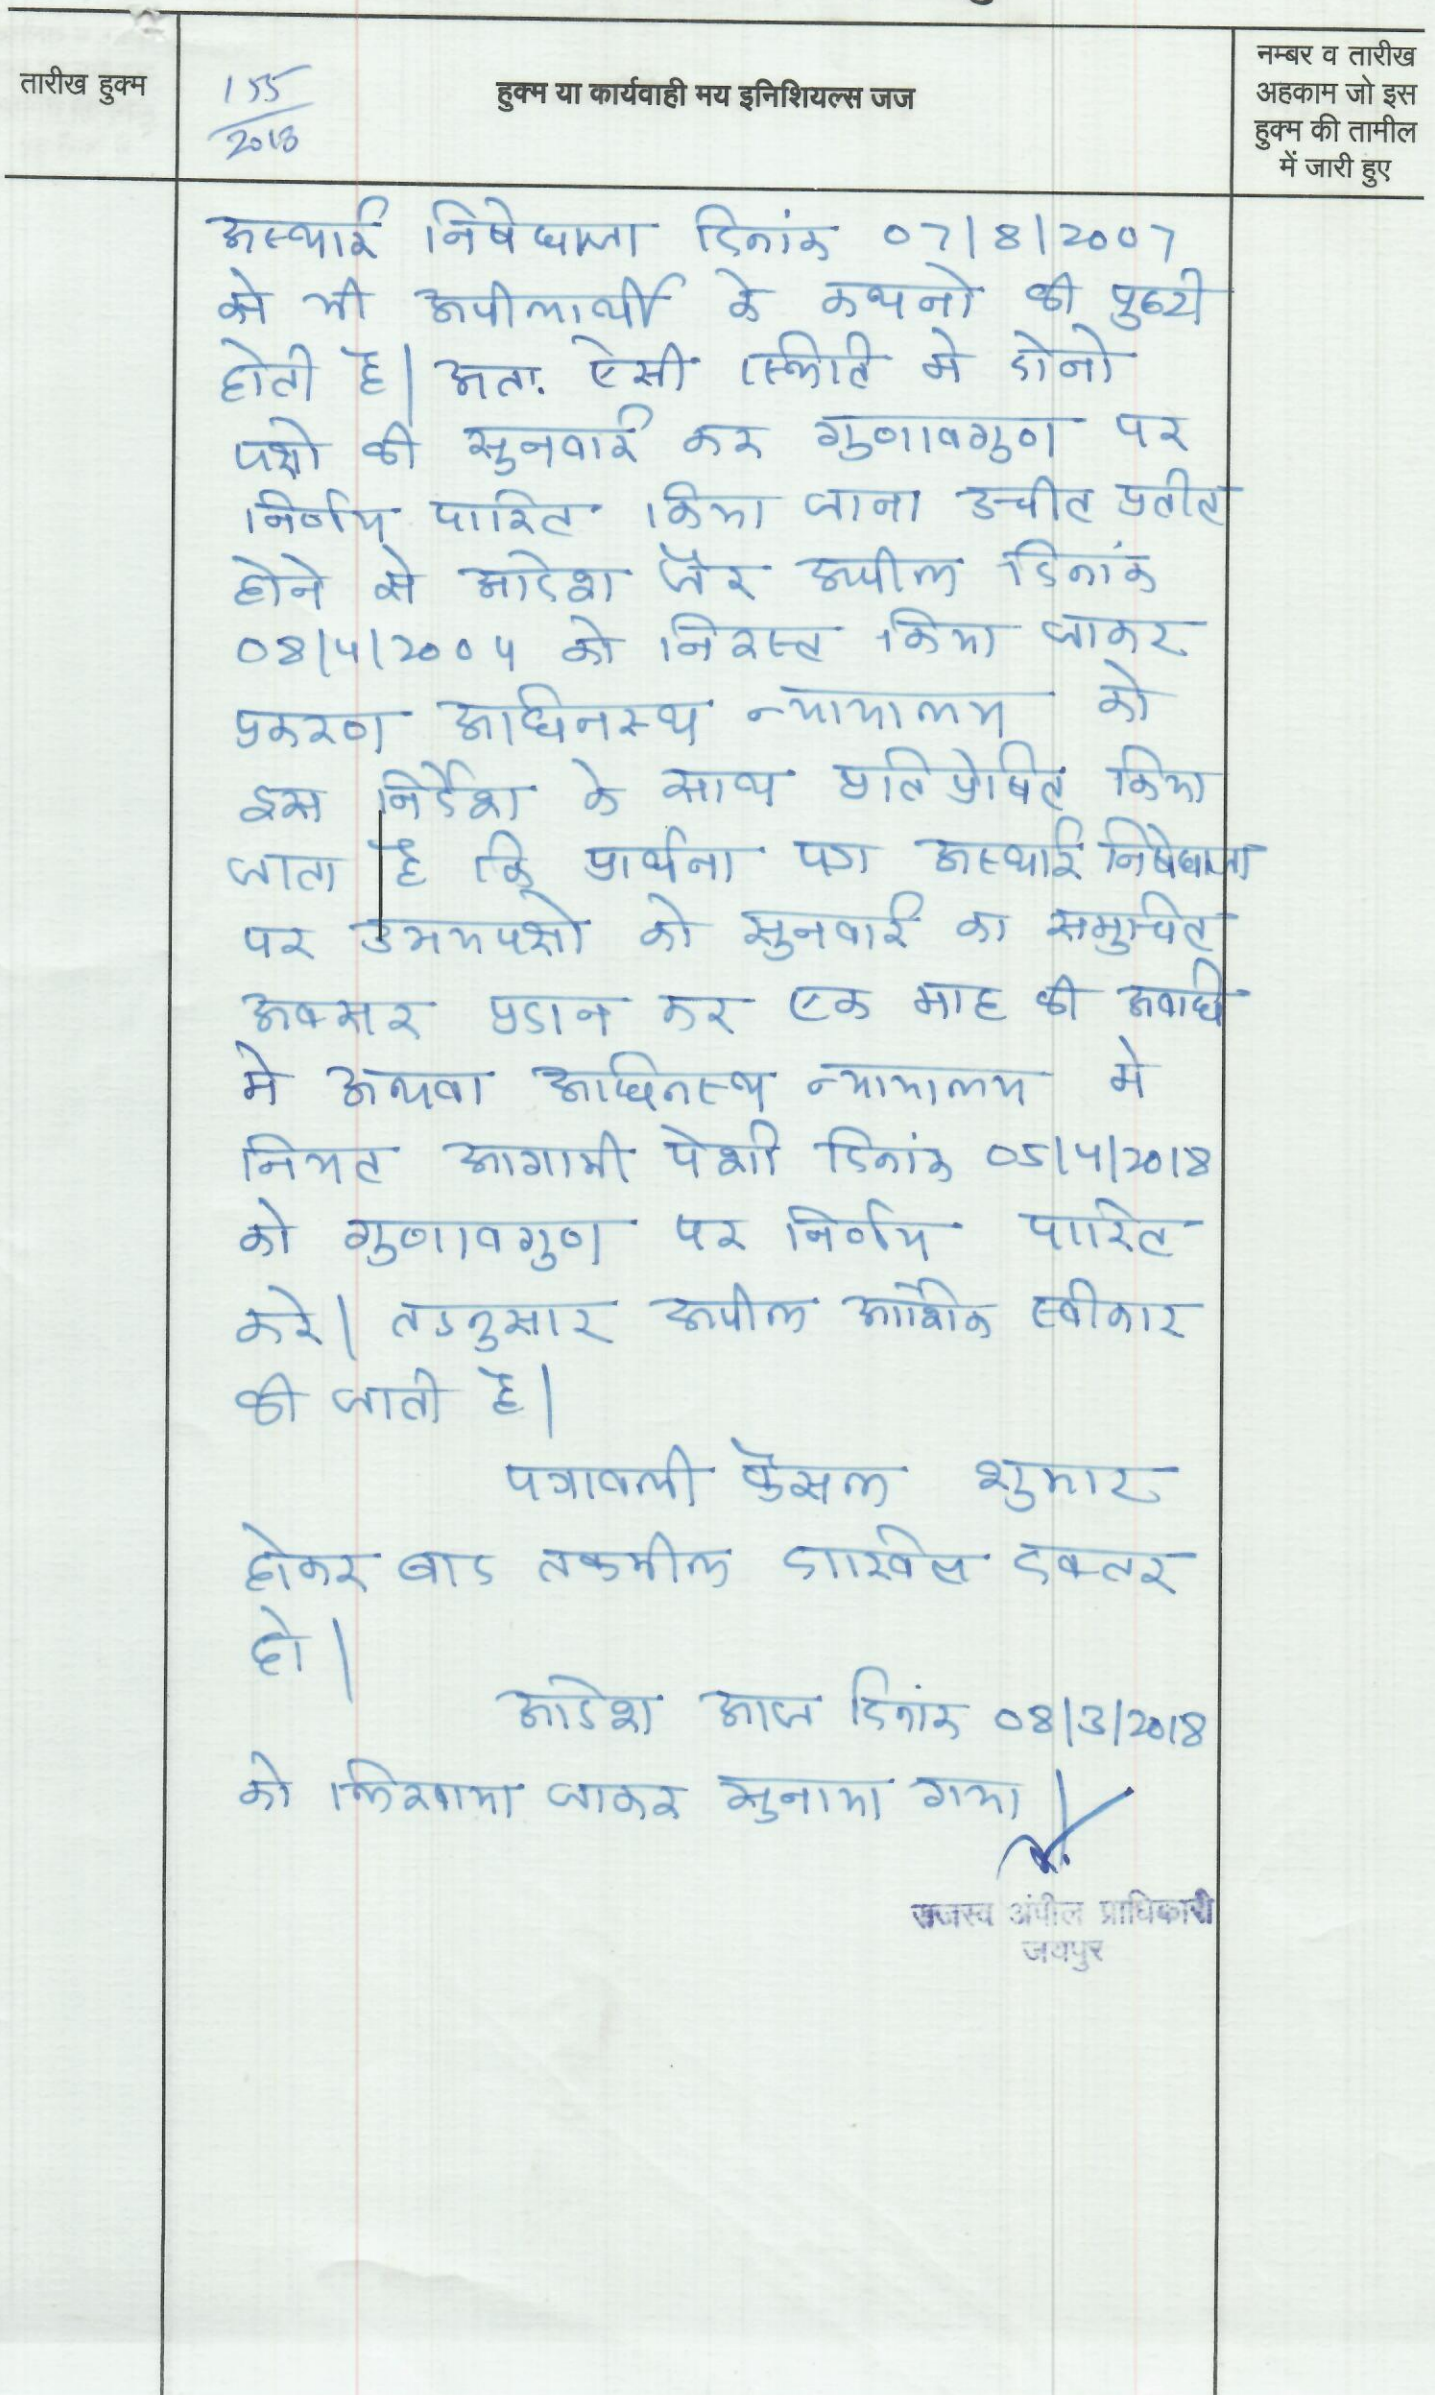 तारीख हुक्म
155
2018
हुक्म या कार्यवाही मय इनिशियल्स जज
नम्बर व तारीख
अहकाम जो इस
हुक्म की तामील
में जारी हुए
अस्थाई निषेधाज्ञा दिनांक 07/8/2007
से भी अपीलार्थी के कथनो की पुष्टी
होती है। अतः ऐसी स्थिति मे दोनो
पक्षो की सुनवाई कर गुणावगुण पर
निर्णय पारित किया जाना उचीत प्रतीत
होने से आदेश जैर अपील दिनांक
08/4/2004 को निरस्त किया जाकर
प्रकरण अधिनस्थ न्यायालय को
इस निर्देश के साथ प्रतिप्रेषित किया
जाता है कि प्रार्थना पत्र अस्थाई निषेधाज्ञा
पर उभयपक्षो को सुनवाई का समुचित
अवसर प्रदान कर एक माह की अवधि
मे अथवा अधिनस्थ न्यायालय मे
नियत आगामी पेशी दिनांक 05/4/2018
को गुणावगुण पर निर्णय पारित
करे। तदनुसार अपील आंशिक स्वीकार
की जाती है।
पत्रावली फैसल शुमार
होकर बाद तकमील दाखिल दफ्तर
हो।
आदेश आज दिनांक 08/3/2018
को लिखाया जाकर सुनाया गया।
राजस्व अपील प्राधिकारी
जयपुर